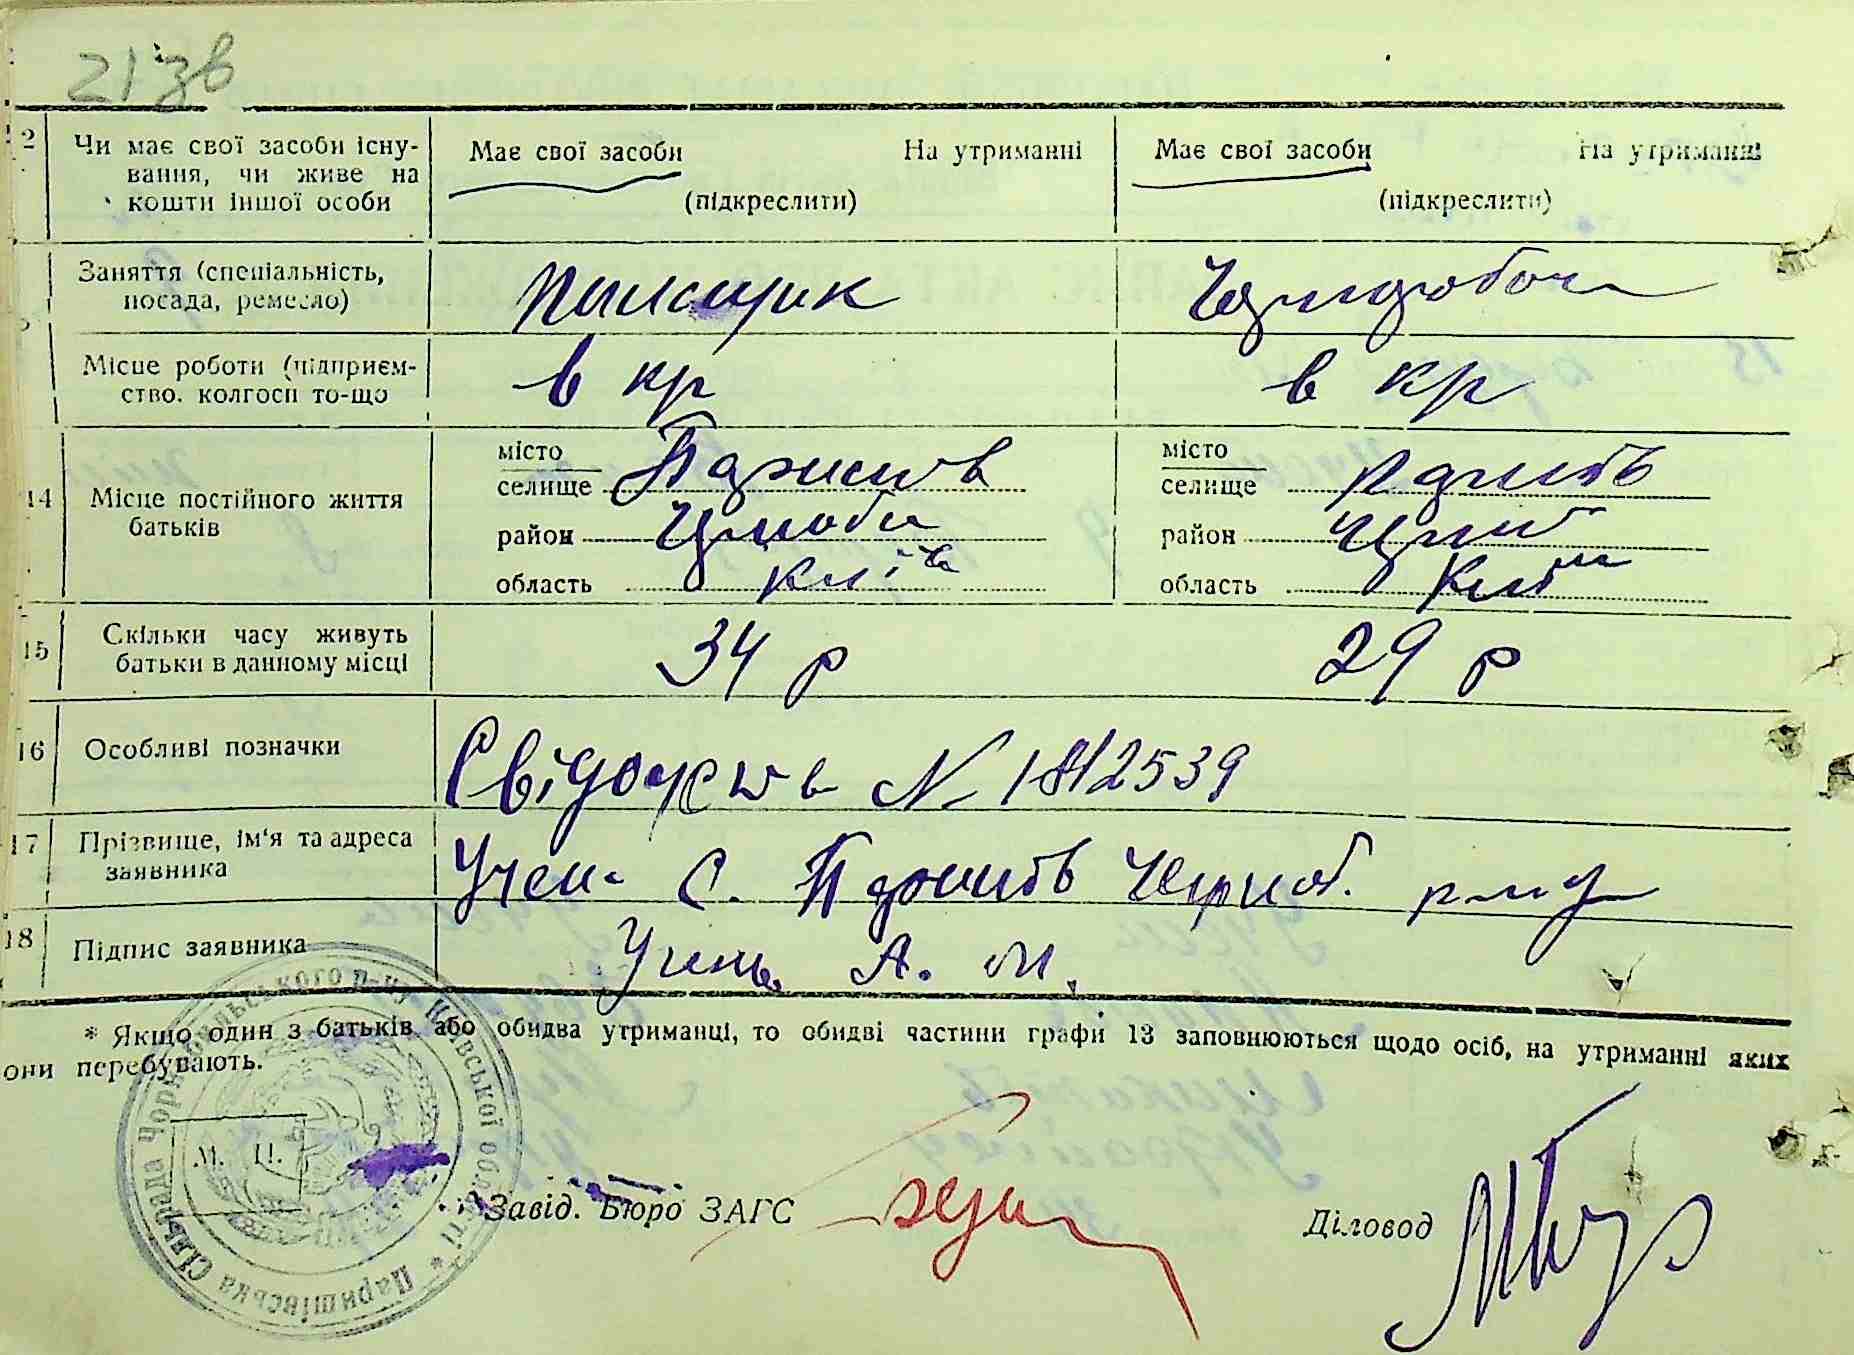 21 зв
2 Чи має свої засоби існу-
вання, чи живе на
кошти іншої особи
Має свої засоби На утриманні
(підкреслити)
Має свої засоби На утриманні
(підкреслити)
Заняття (спеціальність,
посада, ремесло)
Пильщик
Чорнороboча
Місце роботи (підприєм-
ство, колгосп то-що
в кр
в кр
14 Місце постійного життя
батьків
місто
селище Паришів
район Чорноби
область Київ
місто
селище Паришів
район Чорноб
область Київ
15 Скільки часу живуть
батьки в данному місці
34 р
29 р
16 Особливі позначки
Свідоцтв № 1812539
17 Прізвище, ім'я та адреса
заявника
Учень с. Паришів Чорноб. району
18 Підпис заявника
Учень А. М.
* Якщо один з батьків або обидва утриманці, то обидві частини графи 13 заповнюються щодо осіб, на утриманні яких
они перебувають.
М. П.
Паришівська сільрада Чорнобильського р-ну Київської області *
Завід. Бюро ЗАГС
Діловод